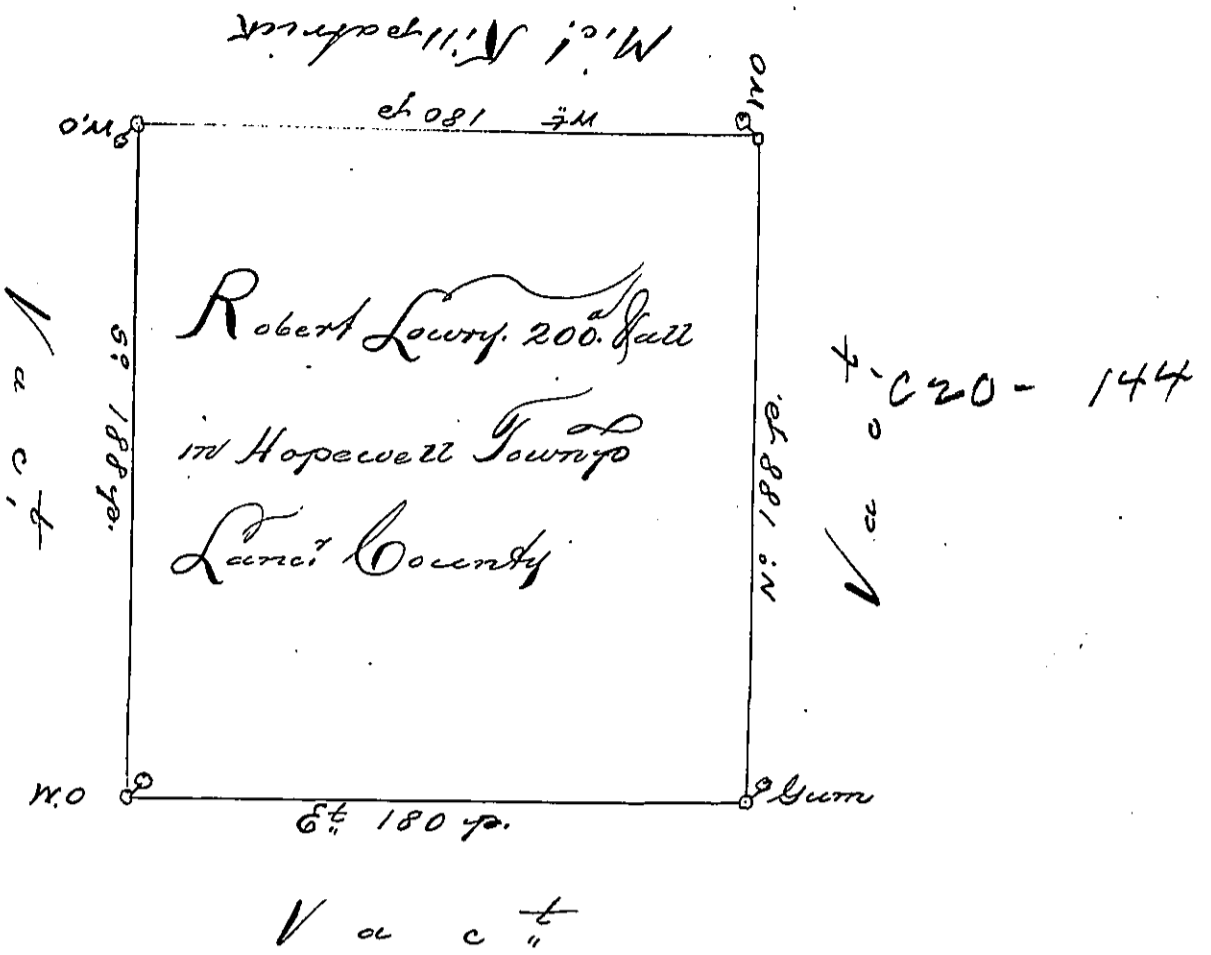 Mic! Killpatrick
W.O
Wt 180 p
W.O
Robert Lowry. 200.a & all
in Hopewell Townsp
Lanc.r County
So 188 p.
No 188 p.
Vact
Vact
C20- 144
W.O
Et 180 p.
Gum
Vact